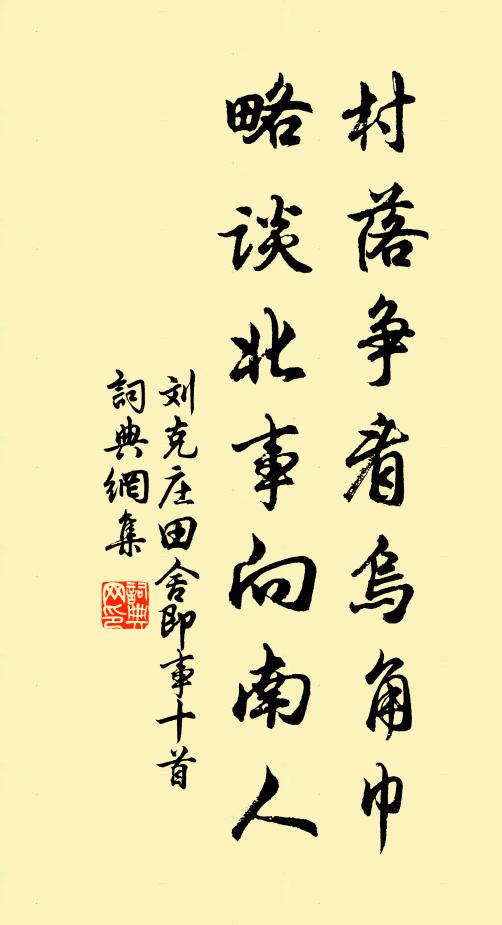 村落争看烏角巾
略談北事向南人
刘克庄田舍即事十首
詞典網集
詞典
网印